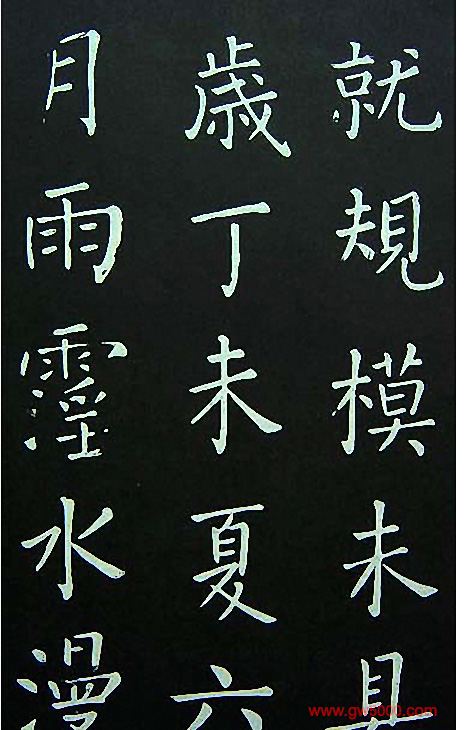 就規模未具
歲丁未夏六
月雨霪水漫
www.gw5000.com